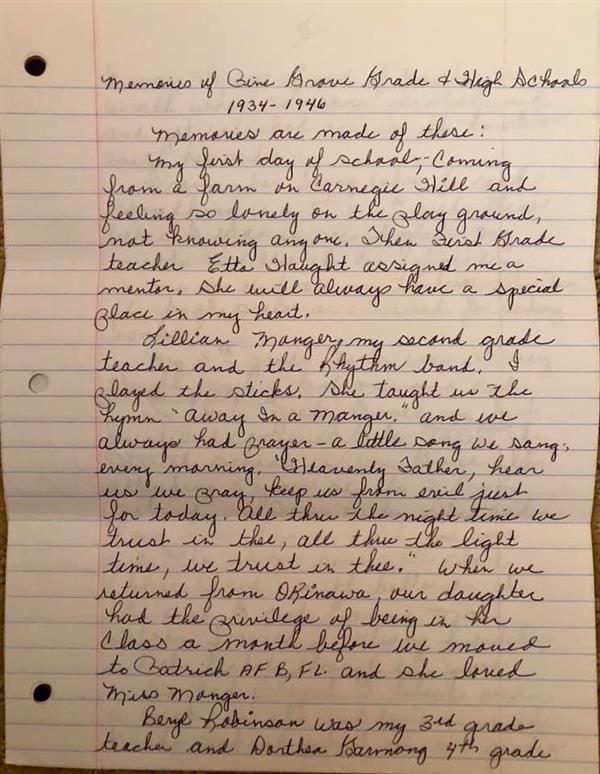 Memories of Pine Grove Grade & High Schools
1934-1946
Memories are made of these:
My first day of school,- Coming
from a farm on Carnegie Hill and
feeling so lonely on the play ground,
not knowing anyone. Then First Grade
teacher Etta Haught assigned me a
mentor. She will always have a special
place in my heart.
Lillian Monger, my second grade
teacher and the Rhythm band. I
played the sticks. She taught us the
hymn "Away In a Manger." and we
always had prayer - a little song we sang,
every morning. "Heavenly Father, hear
us we pray, keep us from evil just
for today. All thru the night time we
trust in thee, all thru the light
time, we trust in thee." When we
returned from Okinawa, our daughter
had the privilege of being in her
Class a month before we moved
to Patrick AFB, FL. and she loved
Miss Monger.
Beryl Robinson was my 3rd grade
teacher and Dorthea Garmong 4th grade